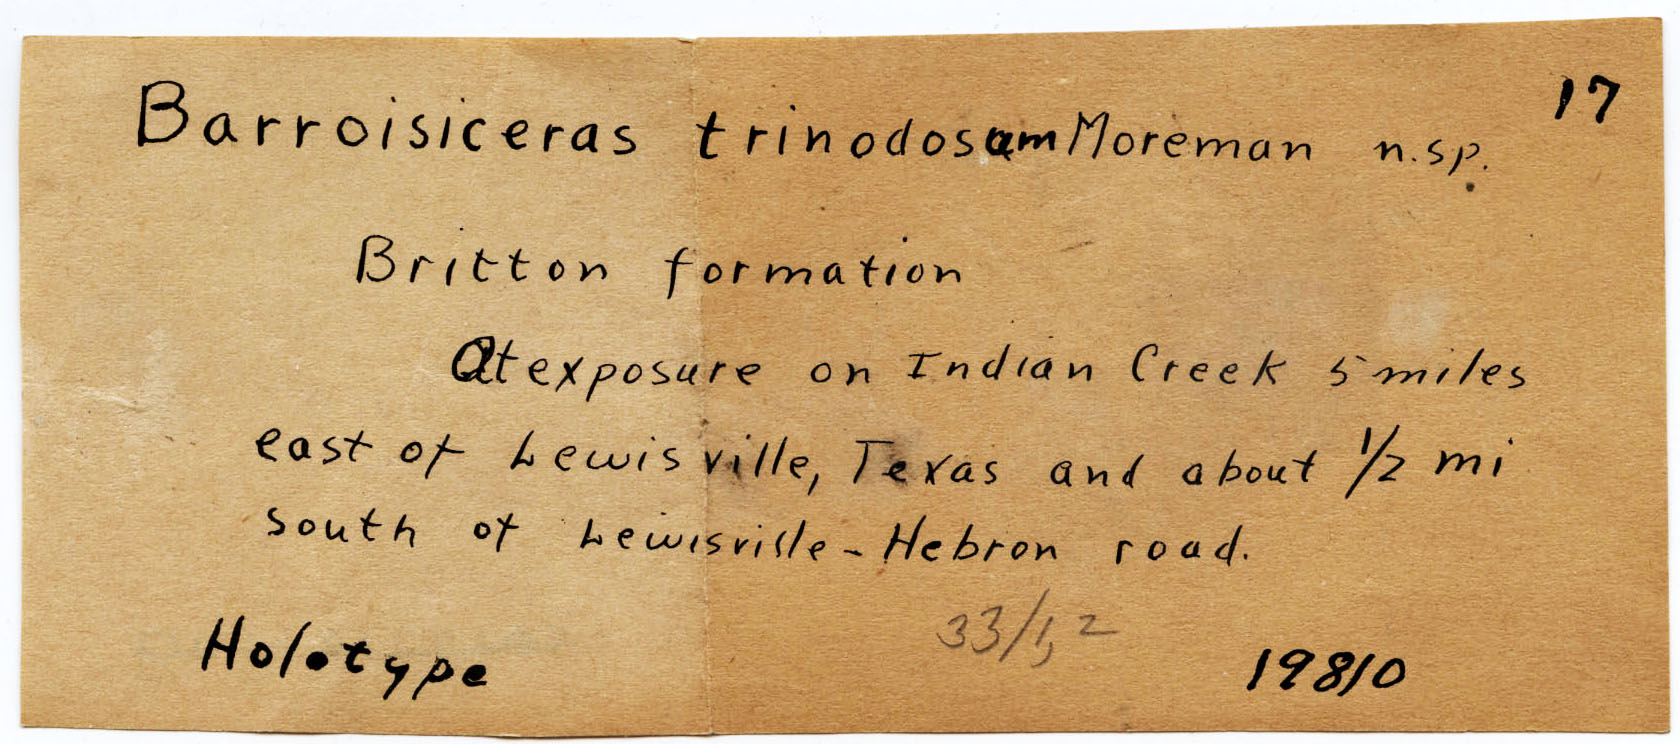 17
Barroisiceras trinodosum Moreman n.sp.
Britton formation
At exposure on Indian Creek 5 miles
east of Lewisville, Texas and about 1/2 mi
south of Lewisville - Hebron road.
33/1,2
Holotype 19810